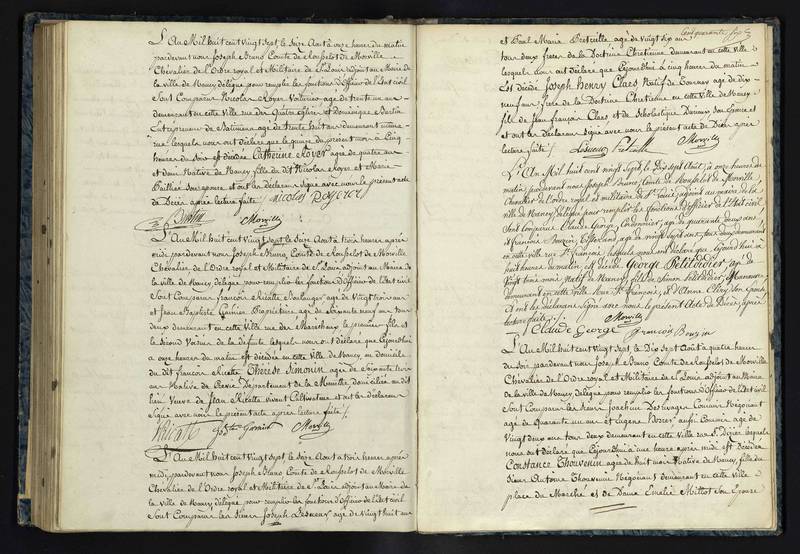 L'An Mil huit cent Vingt Sept, le Seize Aout à onze heures du matin
pardevant nous Joseph Bruno Comte de Rousselot de Morville
Chevalier de l'Ordre royal et Militaire de St Louis adjoint au Maire de
la ville de Nancy délégué pour remplir les fonctions d'Officier de l'Etat civil
Sont Comparus Nicolas Royer Voiturier agé de trente un ans
demeurant en cette Ville rue des Quatre Eglises et Dominique Bastin
Entrepreneur de Batimens agé de trente huit ans demeurant même
rue lesquels nous ont déclaré que le quinze du présent mois à Cinq
heures du Soir est décédée Catherine Royer agée de quatre ans
et demi Native de Nancy fille du dit Nicolas Royer et Marie
et ont les déclarans Signé avec nous le présent acte
de Décès après lecture faite. Nicolas Royer
Bastin Morville
L'An Mil huit cent Vingt sept le Seize Aout à trois heures après
midi pardevant nous Joseph Bruno Comte de Rousselot de Morville
Chevalier de l'Ordre royal et Militaire de St Louis adjoint au Maire de
la ville de Nancy délégué pour remplir les fonctions d'officier de l'Etat civil
Sont Comparus François Ricatte Boulanger agé de Vingt trois ans
et Jean Baptiste Garnier Propriétaire agé de Soixante neuf ans tous
deux demeurant en cette Ville rue des Maréchaux le premier fils et
le Second Voisin de la défunte lesquels nous ont déclaré que Cejourd'hui
à onze heures du matin est décédée en cette Ville de Nancy au domicile
du dit françois Ricatte Thérèse Simonin agée de Soixante
ans Native de Département de la Meurthe domiciliée au dit
lieu Veuve de Jean Ricatte vivant Cultivateur et ont les déclarans
Signé avec nous le présent acte après lecture faite.
Ricatte Morville
L'An Mil huit cent Vingt Sept, le Seize Aout à trois heures après
midi, pardevant nous Joseph Bruno Comte de Rousselot de Morville
Chevalier de l'Ordre royal et Militaire de St Louis adjoint au Maire de
la ville de Nancy délégué pour remplir les fonctions d'officier de l'Etat civil
Sont Comparus les Sieurs Joseph Lesueur agé de Vingt huit ans
Cent quarante
et Paul Marie Breteville agé de Vingt Six ans
tous deux freres de la Doctrine Chretienne demeurant en cette Ville
lesquels nous ont déclaré que Cejourd'hui à Cinq heures du matin
Est décédé Joseph Henry Claes Natif de Tournay agé de dix
neuf ans frere de la Doctrine Chretienne en cette Ville de Nancy
fils de Jean françois Claes et de Scholastique Son Epouse
et ont les déclarans Signé avec nous le présent acte de Décès après
lecture faite. Lesueur Morville
L'An Mil huit cent vingt Sept, le Dix Sept Août, à onze heures du
matin, pardevant nous Joseph Bruno, Comte de Rousselot de Morville,
Chevalier de l'ordre royal et militaire de St Louis, adjoint au maire de la
ville de Nancy, délégué pour remplir les fonctions d'Officier de l'Etat civil
Sont comparus Claude George Cordonnier, agé de quarante deux ans,
et François Bouzin, agé de vingt sept ans, tous deux demeurant
en cette ville rue St François, lesquels nous ont déclaré que Cejourd'hui à
huit heures du matin, est décédé George Peletidier, agé de
Vingt trois mois, Natif de Nancy, fils de Simon Peletidier,
demeurant en cette ville rue St François, et d'Anne Clery, Son Epouse,
et ont les déclarans Signé avec nous le présent Acte de Décès, après
lecture faite. Morville
Claude George François Bouzin
L'An Mil huit cent Vingt Sept, le Dix Sept Aout à quatre heures
du Soir pardevant nous Joseph Bruno Comte de Rousselot de Morville
Chevalier de l'Ordre royal et Militaire de St Louis adjoint au Maire
de la ville de Nancy, délégué pour remplir les fonctions d'officier de l'Etat civil
Sont Comparus les Sieurs Henri Joachim Négociant
agé de Quarante un ans et Eugène aussi Commis agé de
Vingt deux ans tous deux demeurant en cette Ville rue St Dizier lesquels
nous ont déclaré que Cejourd'hui à une heure après midi est décédée
Constance Thouvenin agée de huit mois Native de Nancy, fille du
Sieur Antoine Thouvenin Négociant demeurant en cette Ville
place du Marché et de Dame Emélie Milliot Son Epouse